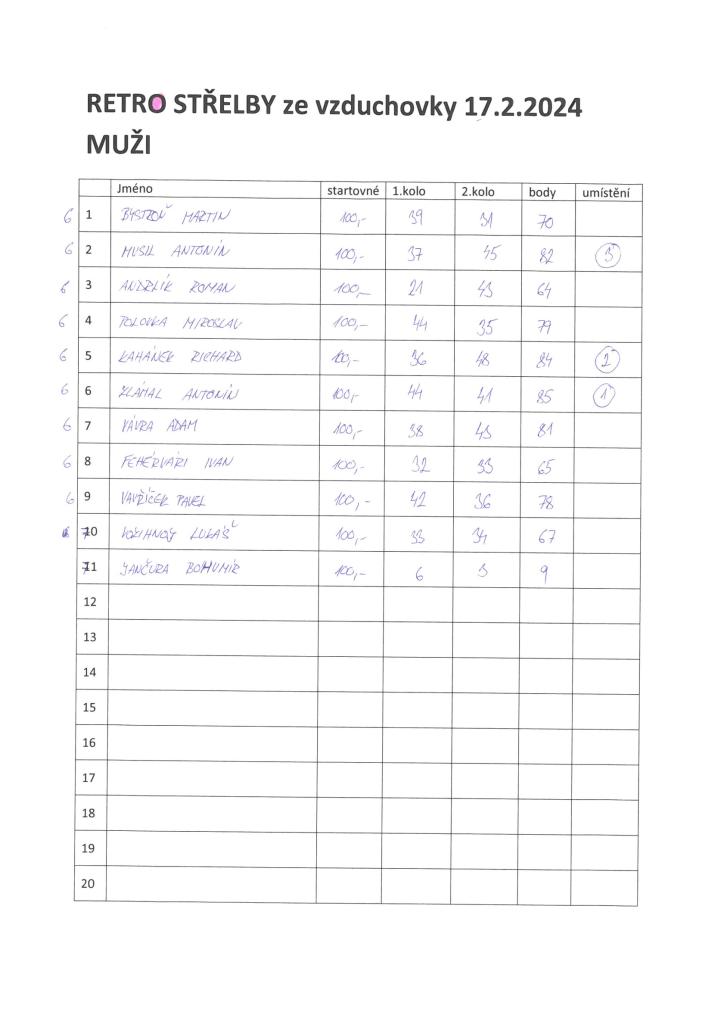 RETRO STŘELBY ze vzduchovky 17.2.2024
MUŽI
Jméno startovné 1.kolo 2.kolo body umístění
6 1 BYSTROŇ MARTIN 100,- 39 31 70
6 2 MUSIL ANTONÍN 100,- 37 45 82 3
6 3 ANDRLÍK ROMAN 100,- 21 43 64
6 4 POLOVKA MIROSLAV 100,- 44 35 79
6 5 KAHÁNEK RICHARD 100,- 36 48 84 2
6 6 ZLÁMAL ANTONÍN 100,- 44 41 85 1
6 7 VÁVRA ADAM 100,- 38 43 81
6 8 FEHÉRVÁRI IVAN 100,- 32 33 65
6 9 VAVŘÍČEK PAVEL 100,- 42 36 78
10 LUKÁŠ 100,- 33 34 67
11 JANČURA BOHUMÍR 100,- 6 3 9
12
13
14
15
16
17
18
19
20